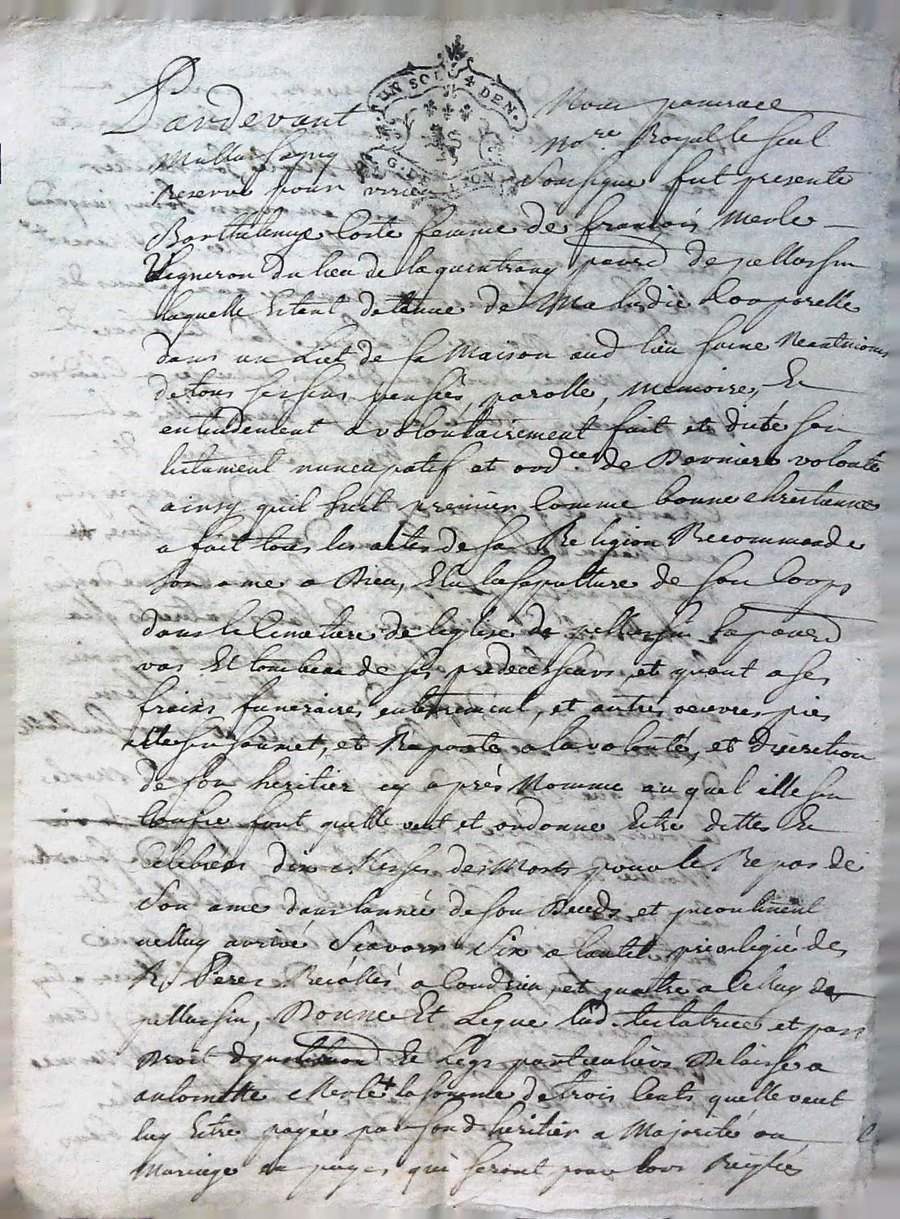 UN SOL 4 DEN.
G. DE LYON
Pardevant Nous pancrace
Mulla Sagny no.re Royal le seul
Reservé pour virieu Soussigné fut presente
Barthelemye Coste femme de françois Merle
Vigneron du lieu de la quentrany parr.e de pellussin
laquelle Estant detenue de Maladie Corporelle
dans un Liet de sa Maison aud lieu saine Neantmoins
de tous ses sens pensées, parolle, memoires, Et
entendement a volontairement fait et dicté son
testament nuncupatif et ord.ce de Derniere volonté
ainsy quil suit premier comme bonne chrestienne
a fait tous les actes de sa Religion Recommandé
son ame a Dieu, Elu la sepulture de son Corps
dans le Cimetiere de leglise de pellussin sa parr.e
vas Et tombeau de ses predecesseurs, et quant a ses
fraix funeraires, enterrement, et autres oeuvres pies
elle sen soumet, et Raporte a la volonté, et discretion
de son heritier cy aprés Nommé au quel elle sen
Confie sont quelle veut et ordonne Estre dittes Et
Celebrées dix Messes de Morts pour le Repos de
Son ame dans lannée de son Deceds, et incontinent
icelluy arrivé Scavoir Six a lautel privilegié des
R. Peres Recollés a Condrieu, et quatre a Celluy de
pellussin, Donne Et Legue lad. testatrice et par
Droit dinstitution Et Legs particuliers Delaissé a
antoinette Merle + la somme de trois Cents quelle veut
luy Estre payée par sond heritier a Majorité ou
Mariage en payes qui seront pour lors Reglés